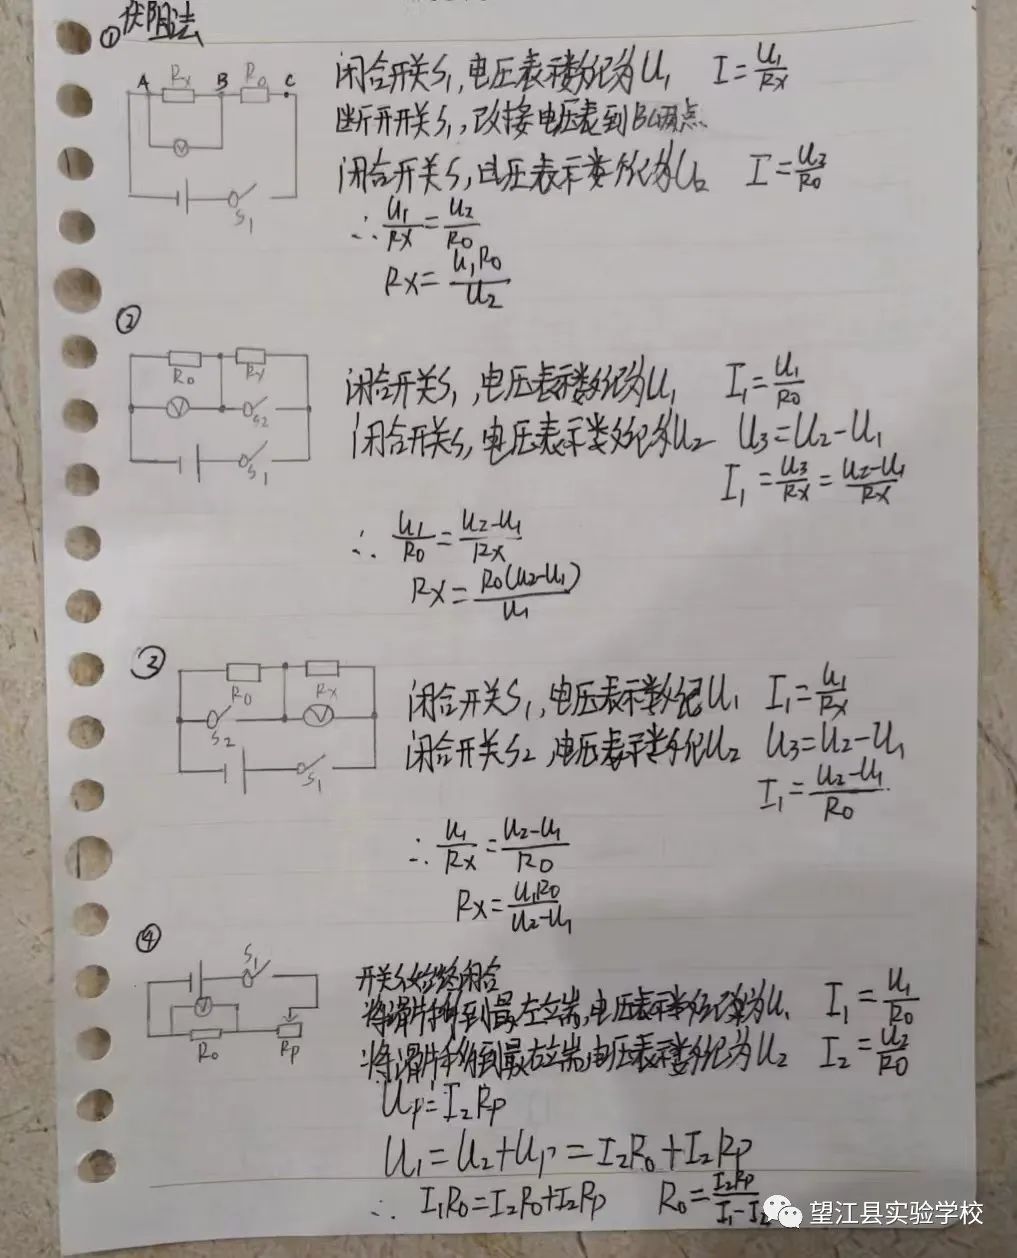 ① 伏阻法
A Rx B R0 C
V
S1
闭合开关S1,电压表示数记为U1 I=U1/Rx
断开开关S1,改接电压表到BC两点
闭合开关S1,电压表示数记为U2 I=U2/R0
∴ U1/Rx=U2/R0
Rx=U1R0/U2
②
R0 Rx
V S2
S1
闭合开关S1,电压表示数记为U1 I1=U1/R0
闭合开关S,电压表示数记为U2 U3=U2-U1
I1=U3/Rx=U2-U1/Rx
∴ U1/R0=U2-U1/Rx
Rx=R0(U2-U1)/U1
③
R0 Rx
S2 V
S1
闭合开关S1,电压表示数记U1 I1=U1/Rx
闭合开关S2,电压表示数记U2 U3=U2-U1
I1=U2-U1/R0
∴ U1/Rx=U2-U1/R0
Rx=U1R0/U2-U1
④
S1
V
R0 Rp
开关S始终闭合
将滑片移到最左端,电压表示数记为U1 I1=U1/R0
将滑片移到最右端,电压表示数记为U2 I2=U2/R0
Up=I2Rp
U1=U2+Up=I2R0+I2Rp
∴ I1R0=I2R0+I2Rp R0=I2Rp/I1-I2
望江县实验学校